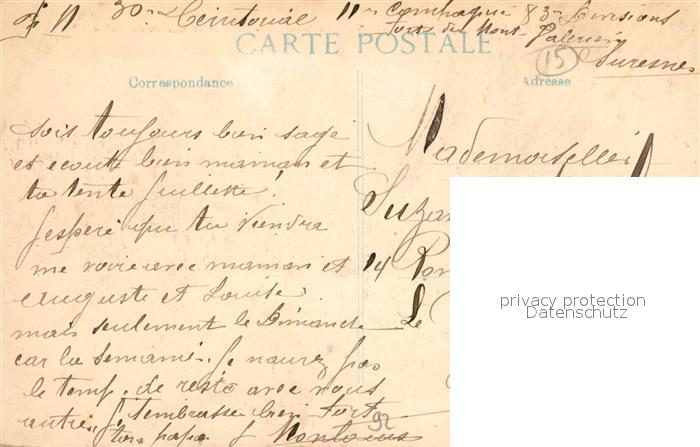 30e Territorial 11e Compagnie 83e Divisions
fort du Mont Valerien
Suresnes
15
CARTE POSTALE
Correspondance
Adresse
sois toujours bien sage
et ecoute bien maman et
ta tente Juillette!
Jespere que tu Viendra
me voire avec maman et
Auguste et Louise.
mais seulement le Dimanche
car la Semaine. Je naurez pas
le temp. de reste avec vous
autre, Je Tembrasse bien fort
ton papa J
92
Mademoiselle
14
Le
privacy protection
Datenschutz